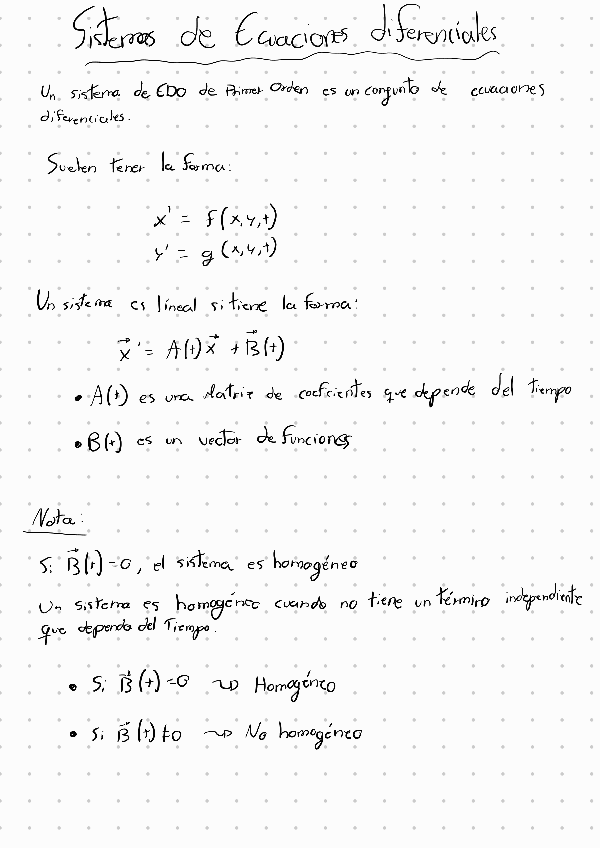 Sistemas de Ecuaciones diferenciales
Un sistema de EDO de Primer Orden es un conjunto de ecuaciones
diferenciales.
Suelen tener la forma:
x' = f(x,y,t)
y' = g(x,y,t)
Un sistema es líneal si tiene la forma:
x⃗' = A(t)x⃗ + B⃗(t)
• A(t) es una Matriz de coeficientes que depende del tiempo
• B(t) es un vector de funciones
Nota:
Si B⃗(t)=0, el sistema es homogéneo
Un sistema es homogéneo cuando no tiene un término independiente
que dependa del Tiempo.
• Si B⃗(t)=0 ⇝ Homogéneo
• Si B⃗(t)≠0 ⇝ No homogéneo